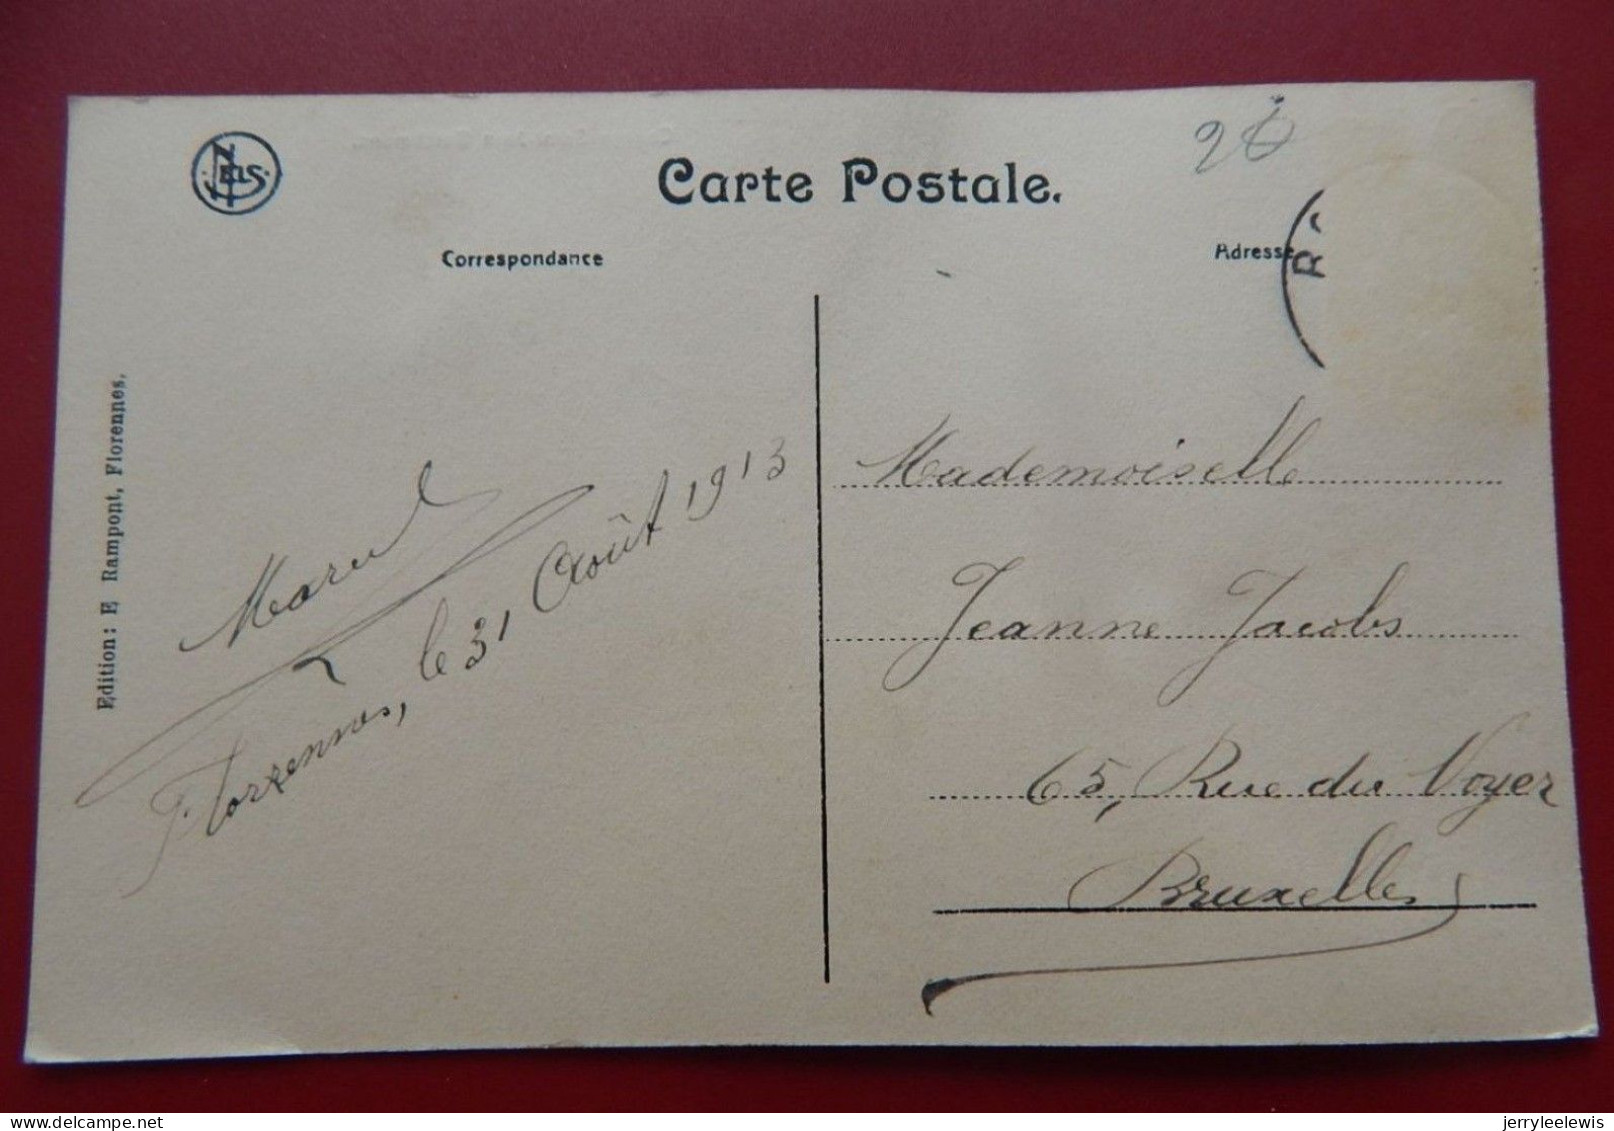 NELS
Carte Postale.
26
Correspondance
Adresse
R
Edition: E Rampont, Florennes.
Marcel
Florennes, le 31 Août 1913
Mademoiselle
Jeanne Jacobs
65, Rue du Noyer
Bruxelles
jerryleelewis